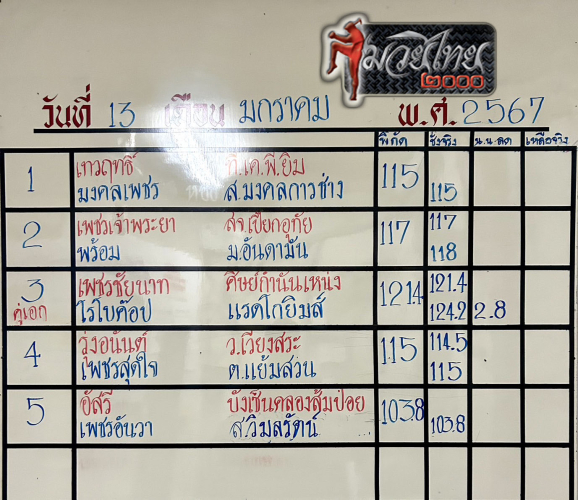 มวยไทย
๒๐๐๐
วันที่ 13 เดือน มกราคม พ.ศ. 2567
พิกัด ชั่งจริง น.น.ลด เหลือจริง
1 เทวฤทธิ์ ที.เค.พี.ยิม 115
มงคลเพชร ส.มงคลการช่าง 115
2 เพชรเจ้าพระยา สจ.เปี๊ยกอุทัย 117 117
พร้อม ม.อันดามัน 118
3 เพชรชัยนาท ศิษย์กำนันเหน่ง 121.4 121.4
คู่เอก โรโบค๊อป แรดโกยิมส์ 124.2 2.8
4 รุ่งอนันต์ ว.เวียงสระ 115 114.5
เพชรสุดใจ ต.แย้มสวน 115
5 อัสรี บังเซ็นคลองส้มป่อย 103.8
เพชรอันวา ส.วิมลรัตน์ 103.8